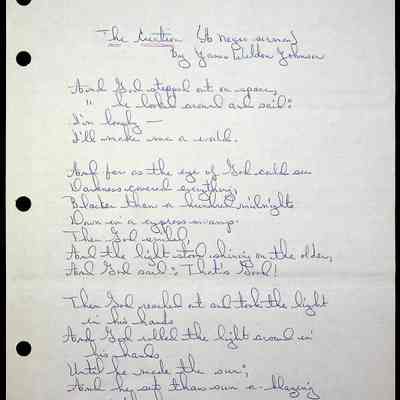 The Creation (A Negro sermon)
By James Weldon Johnson
And God stepped out on space,
" he looked around and said:
I'm lonely —
I'll make me a world.
And far as the eye of God could see
Darkness covered everything,
Blacker than a hundred midnights
Down in a cypress swamp.
Then God smiled,
And the light stood shining on the other,
And God said: That's Good!
Then God reached out and took the light
in his hands
And God rolled the light around in
his hands
Until he made the sun;
And he set that sun a-blazing